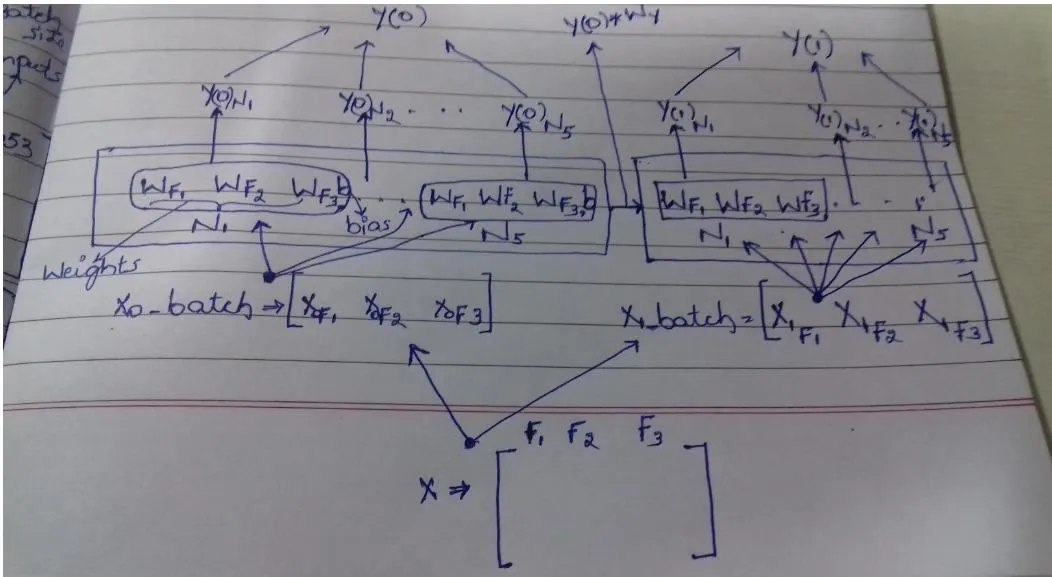 batch
size
inputs
53
Y(0) Y(0)*Wy Y(1)
Y(0)N1 Y(0)N2 . . . Y(0)N5 Y(1)N1 Y(1)N2 . . Y(1)N5
WF1 WF2 WF3,b . . . WF1 WF2 WF3,b WF1 WF2 WF3 . . .
bias
N1 N5 N1 N5
Weights
X0_batch ⇒ [X0F1 X0F2 X0F3] X1_batch = [X1F1 X1F2 X1F3]
F1 F2 F3
X ⇒ [ ]